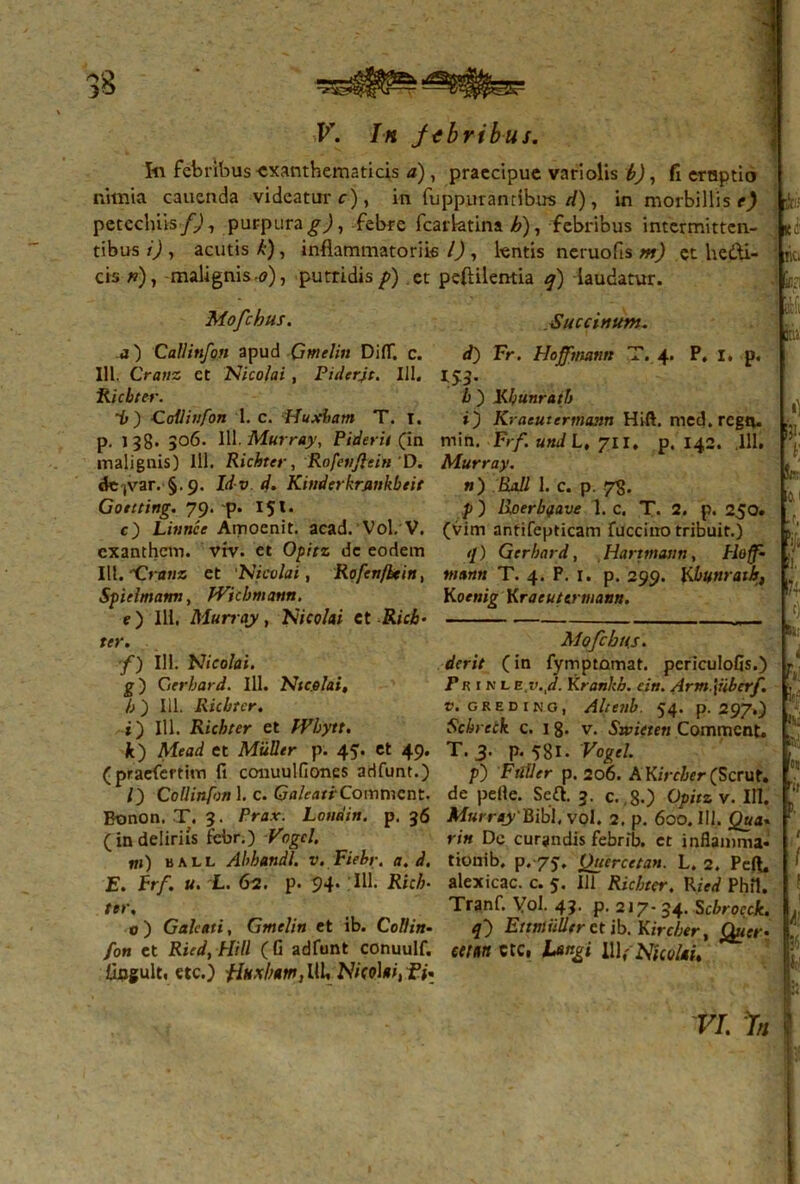 38
V. In febribus.
In febribus exanthematicis a), praecipue variolis b), ſi eruptio
nimia cauenda videatur c), in ſuppurantibus d), in morbillis e)
petechiis f), purpura g), febre ſcarlatina h), febribus intermitten-
tibus i), acutis k), inflammatoriis l), lentis neruoſis m) et hecti-
cis n), malignis o), putridis p) et peſtilentia q) laudatur.
Moſchus.
a) Callinſon apud Gmelin Diſſ. c.
Ill. Cranz et Nicolai, Piderit. Ill.
Richter.
b) Collinſon l. c. Huxham T. I.
p. 138. 306. Ill. Murray, Piderit (in
malignis) Ill. Richter, Roſenſtein D.
de var. §. 9. Id v. d. Kinderkrankheit
Goetting. 79. p. 151.
c) Linnée Amoenit. acad. Vol. V.
exanthem. viv. et Opitz de eodem
Ill. Cranz et Nicolai, Roſenſtein,
Spielmann, Wichmann.
e) Ill. Murray, Nicolai et Rich-
ter.
f) Ill. Nicolai.
g) Gerhard. Ill. Nicolai,
h) Ill. Richter.
i) Ill. Richter et Whytt.
k) Mead et Müller p. 45. et 49.
(praeſertim ſi conuulſiones adſunt.)
l) Collinſon l. c. Galeati Comment.
Bonon. T. 3. Prax. Londin. p. 36
(in deliriis febr.) Vogel.
m) BALL Abhandl. v. Fiebr. a. d.
E. Frf. u. L. 62. p. 94. Ill. Rich-
ter,
o) Galeati, Gmelin et ib. Collin-
ſon et Ried, Hill (ſi adſunt conuulſ.
ſingult. etc.) Huxham, Ill. Nicolai, Pi-
Succinum.
d) Fr. Hoffmann T. 4. P. I. p.
153.
h) Khunrath
i) Kraeutermann Hiſt. med. regn.
min. Frf. und L. 711. p. 142. Ill.
Murray.
n) Ball l. c. p. 78.
p) Boerhaave l. c. T. 2. p. 250.
(vim antiſepticam ſuccino tribuit.)
q) Gerhard, Hartmann, Hoff-
mann T. 4. P. I. p. 299. Khunrath,
Koenig Kraeutermann.
Moſchus.
derit (in ſymptomat. periculoſis.)
PRINLE v. d. Krankh. ein. Arm. überſ.
v. GREDING, Altenb. 54. p. 297.)
Schreck c. 18. v. Swieten Comment.
T. 3. p. 581. Vogel.
p) Fuller p. 206. A Kircher (Scrut.
de peſte. Sect. 3. c. 8.) Opitz v. Ill.
Murray Bibl. vol. 2. p. 600. Ill. Qua-
rin De curandis febrib. et inflamma-
tionib. p. 75. Quercetan. L. 2. Peſt.
alexicac. c. 5. Ill Richter. Ried Phil.
Tranſ. Vol. 43. p. 217-34. Schroeck.
q) Ettmüller et ib. Kircher, Quer-
cetan etc. Langi Ill. Nicolai.
VI. In